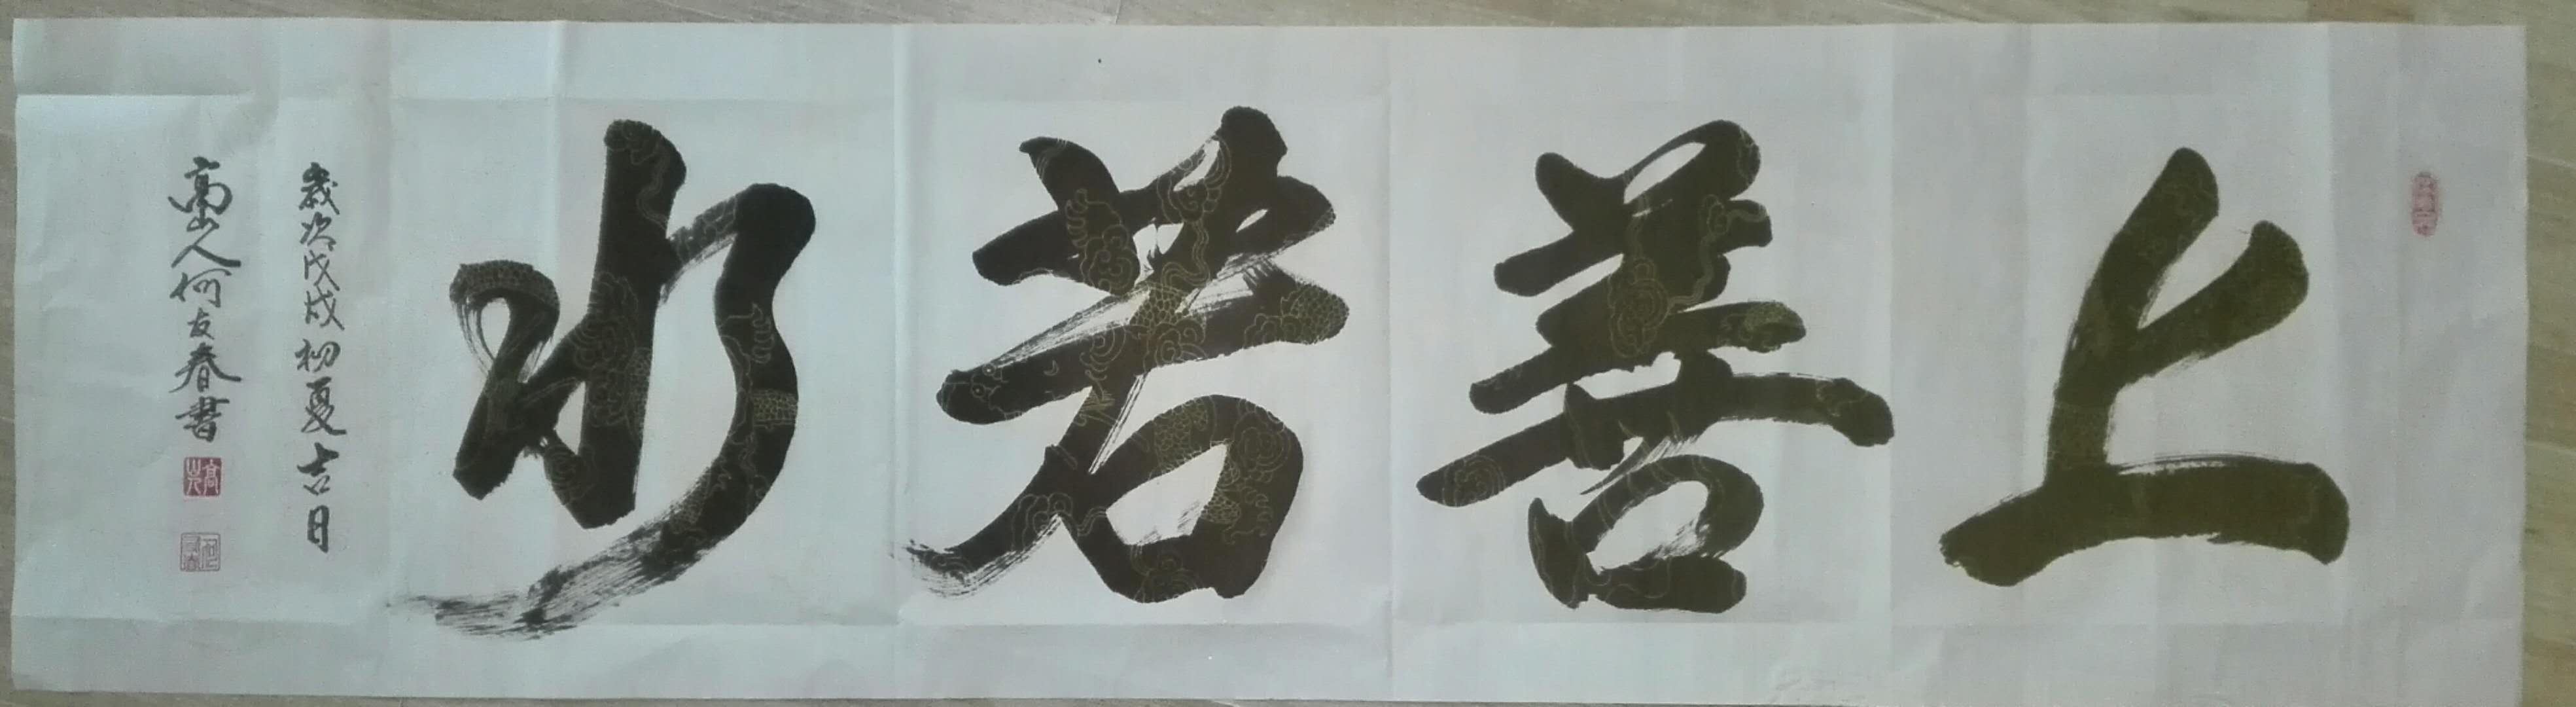 上善若水
歲次戊戌初夏吉日
高山人何友春書